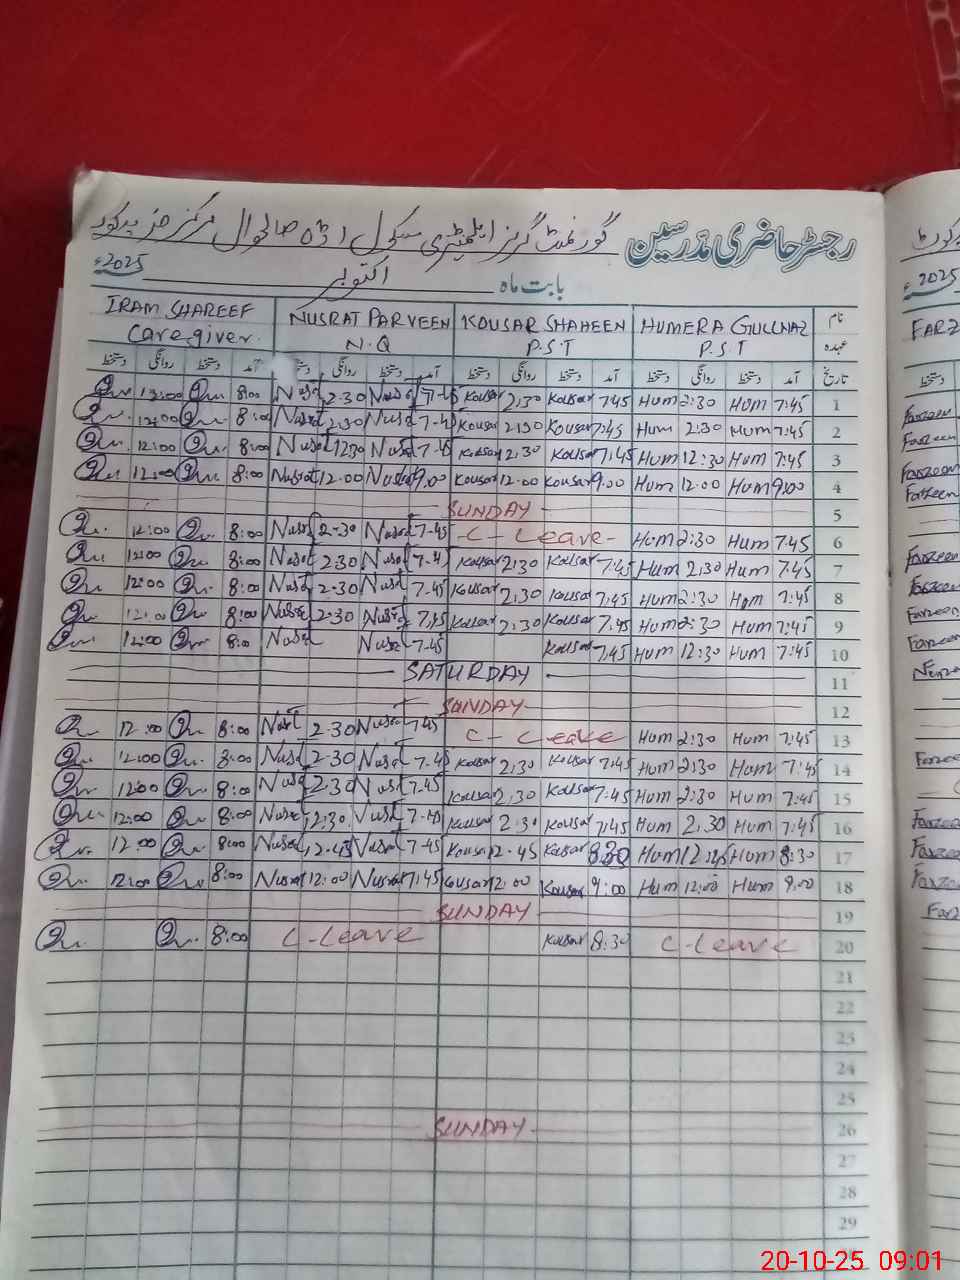 رجسٹر حاضری مدرسین گورنمنٹ گرلز ایلیمنٹری سکول اڈہ صالحوال مرکز
بابت ماہ اکتوبر 2025ء
نام HUMERA GULLNAZ KOUSAR SHAHEEN NUSRAT PARVEEN IRAM SHAREEF
عہدہ P.S.T P.S.T N.Q Care giver.
تاریخ آمد دستخط روانگی دستخط آمد دستخط روانگی دستخط آمد دستخط روانگی دستخط آمد دستخط روانگی دستخط
12:00 8:00 Nusrat 2-30 Nusrat 7-45 Kousar 2:30 Kousar 7:45 Hum 2:30 Hum 7:45 1
12:00 8:00 Nusrat 2:30 Nusrat 7-45 Kousar 2:30 Kousar 7:45 Hum 2:30 Hum 7:45 2
12:00 8:00 Nusrat 12:30 Nusrat 7-45 Kousar 2:30 Kousar 7:45 Hum 12:30 Hum 7:45 3
12:00 8:00 Nusrat 12.00 Nusrat 9.00 Kousar 12.00 Kousar 9.00 Hum 12:00 Hum 9:00 4
SUNDAY 5
12:00 8:00 Nusrat 2-30 Nusrat 7-45 C-Leave Hum 2:30 Hum 7:45 6
12:00 8:00 Nusrat 2.30 Nusrat 7-45 Kousar 2:30 Kousar 7:45 Hum 2:30 Hum 7:45 7
12:00 8:00 Nusrat 2-30 Nusrat 7-45 Kousar 2:30 Kousar 7:45 Hum 2:30 Hum 7:45 8
12:00 8:00 Nusrat 2-30 Nusrat 7.45 Kousar 2:30 Kousar 7:45 Hum 2:30 Hum 7:45 9
12:00 8:0 Nusrat Nusrat 7-45 Kousar 7:45 Hum 12:30 Hum 7:45 10
SATURDAY 11
SUNDAY 12
12:00 8:00 Nusrat 2.30 Nusrat 7-45 C-Leave Hum 2:30 Hum 7:45 13
12:00 8:00 Nusrat 2-30 Nusrat 7-45 Kousar 2:30 Kousar 7:45 Hum 2:30 Hum 7:45 14
12:00 8:00 Nusrat 2-30 Nusrat 7-45 Kousar 2:30 Kousar 7:45 Hum 2:30 Hum 7:45 15
12:00 8:00 Nusrat 2:30 Nusrat Kousar 2:30 Kousar 7:45 Hum 2:30 Hum 7:45 16
12:00 8:00 Nusrat 12-45 Nusrat 7-45 Kousar 12-45 Kousar 8:30 Hum 12:45 Hum 8:30 17
12:00 8:00 Nusrat 12:00 Nusrat 7:45 Kousar 12:00 Kousar 9:00 Hum 12:00 Hum 9:00 18
SUNDAY 19
8:00 C-Leave Kousar 8:30 C-Leave 20
21
22
23
24
25
SUNDAY 26
27
28
29
2025
FARZ
دستخط
Farzeen
Farzeen
Farzeen
Farzeen
Farzeen
Farzeen
Farzeen
Farzeen
20-10-25 09:01